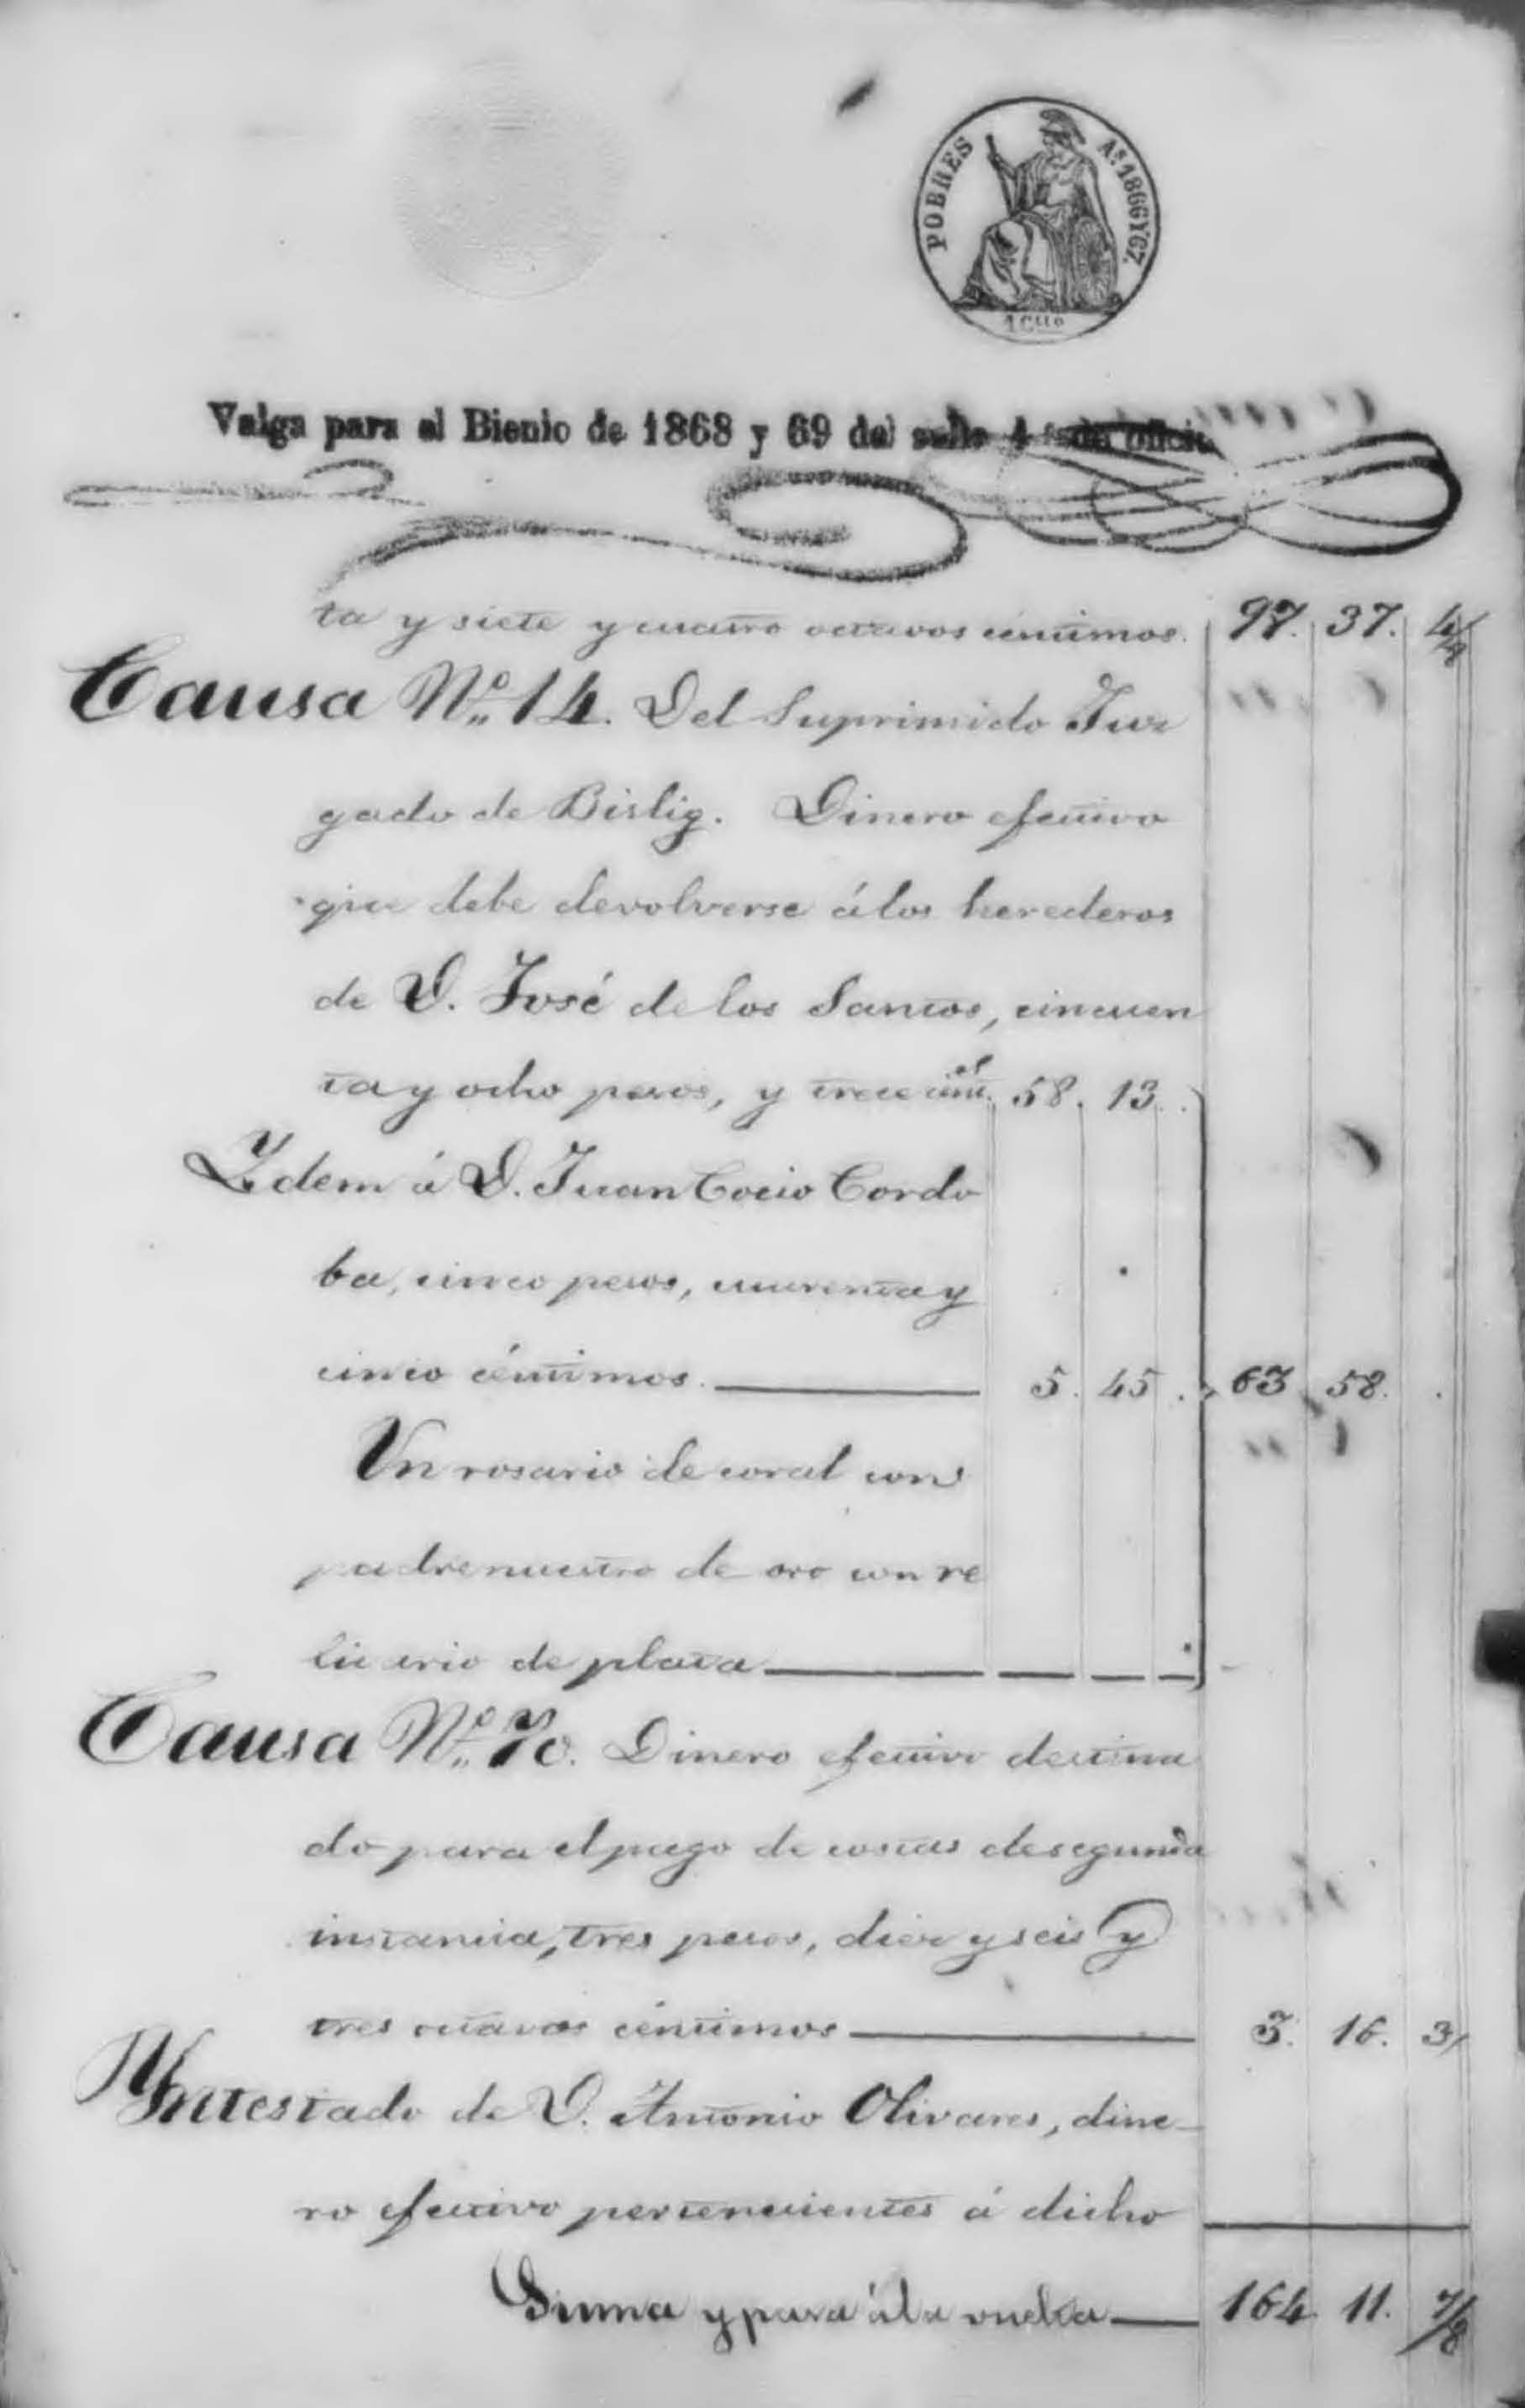 POBRES Aº 1866 Y 67.
1 Ctto
Valga para el Bienio de 1868 y 69 del sello 4º de oficio
ta y siete y cuatro octavos céntimos. 97. 37. 4/8
Causa Nº 14. Del Suprimido Juz
gado de Bislig. Dinero efectivo
que debe devolverse á los herederos
de D. José de los Santos, cincuen
ta y ocho pesos, y trece cént. 58. 13.
Ydem á D. Juan Cocio Cordo
ba, cinco pesos, cuarenta y
cinco céntimos. 5. 45. 63 58.
Un rosario de coral con
padrenuestro de oro con re
licario de plata
Causa Nº 70. Dinero efectivo destina
do para el pago de costas de segunda
instancia, tres pesos, diez y seis y
tres octavos céntimos 3. 16. 3/
Yntestado de D. Antonio Olivares, dine-
ro efectivo pertenecientes á dicho
Suma y pasa á la vuelta 164. 11. 7/8